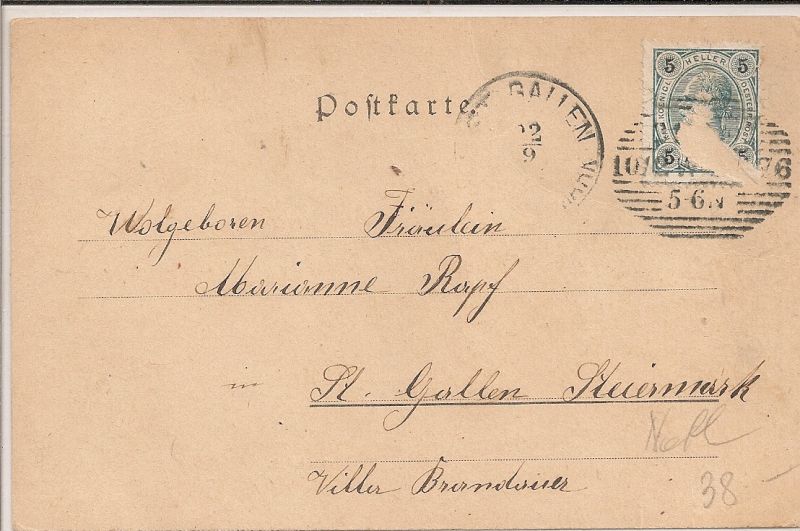 Postkarte.
ST. GALLEN
5 HELLER 5
5 5
10/ 76
5-6N
Wolgeboren Fräulein
Marianne Rapf
in St. Gallen Steiermark
Villa Brandauer
38